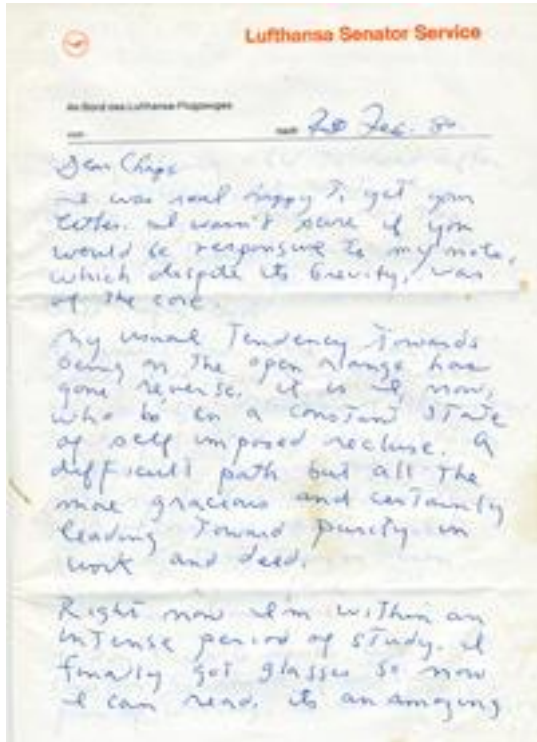 Lufthansa Senator Service
An Bord des Lufthansa-Flugzeuges
von nach 20 Feb. 80
Dear Chips
I was real happy to get your
letter. I wasn't sure if you
would be responsive to my note,
which despite its brevity, was
of the core.
My usual tendency towards
being on the open range have
gone reverse. it is I, now,
who is in a constant state
of self imposed recluse. A
difficult path but all the
more gracious and certainly
leading toward purity in
work and deed.
Right now I'm within an
intense period of study. I
finally got glasses so now
I can read. its an amazing